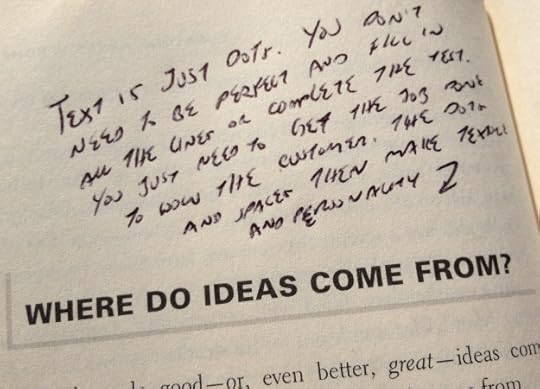 TEXT IS JUST DOTS. YOU DON'T
NEED TO BE PERFECT AND FILL IN
ALL THE LINES OR COMPLETE THE TEST.
YOU JUST NEED TO GET THE JOB DONE
TO WOW THE CUSTOMER. THE DOTS
AND SPACES THEN MAKE TEXTURE
AND PERSONALITY
WHERE DO IDEAS COME FROM?
good—or, even better, great—ideas com
from